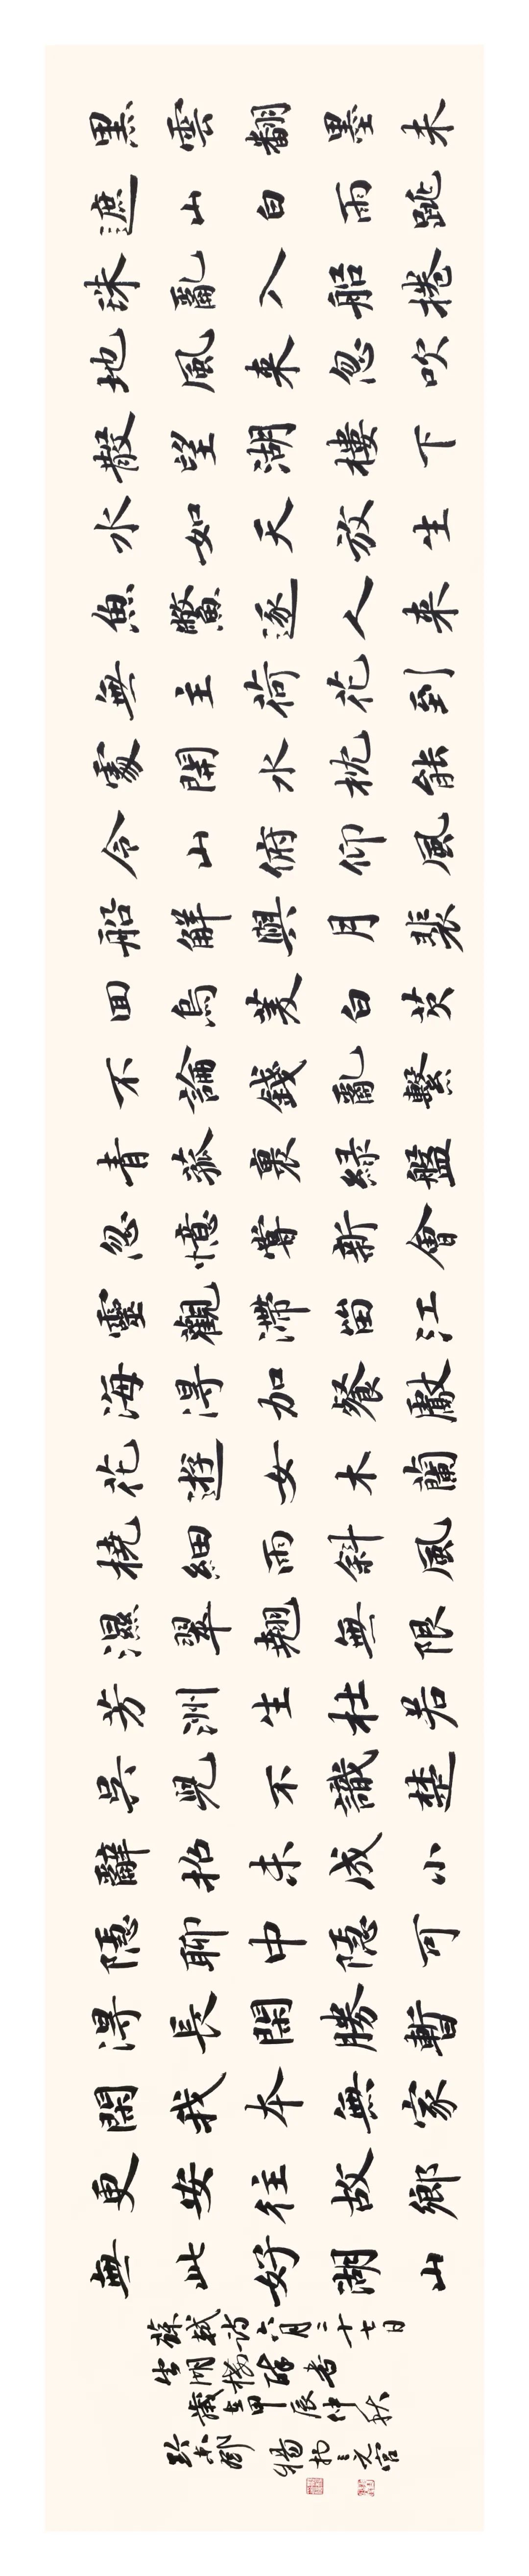 黑雲翻墨未
遮山白雨跳
珠亂入船捲
地風來忽吹
散望湖樓下
水如天放生
魚鱉逐人來
無主荷花到
處開水枕能
令山俯仰風
船解與月裴
回烏菱白芡
不論錢亂繫
青菰裹綠盤
忽憶嘗新會
靈觀滯留江
海得加餐獻
花遊女木蘭
橈細雨斜風
濕翠翹無限
芳洲生杜若
吳兒不識楚
辭招未成小
隱聊中隱可
得長閑勝暫
閑我本無家
更安往故鄉
無此好湖山
蘇軾詩六月二十七日
望湖樓醉書
歲在甲辰仲秋